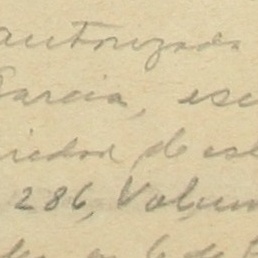 autorizada
Garcia, esc
iedad de est
286, Volum